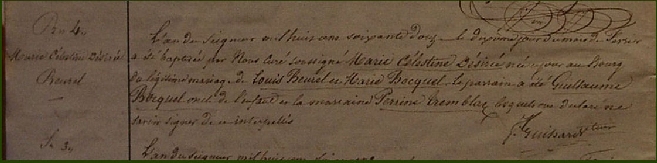 Bn 4e
Marie Célestine Désirée
Beurel
L'an du Seigneur mil huit cent soixante douze le du mois de Février
a été baptisée par Nous Curé soussigné Marie Célestine Désirée née jour au Bourg
du légitime mariage de Louis Beurel et Marie Bocquel. Le parrain a été Guillaume
Bocquel oncle de l'enfant et la marraine Perrine Tremblai lesquels ont déclaré ne
savoir signer de ce interpellés
J. Guishard
Se 3e
L'an du Seigneur mil huit cent